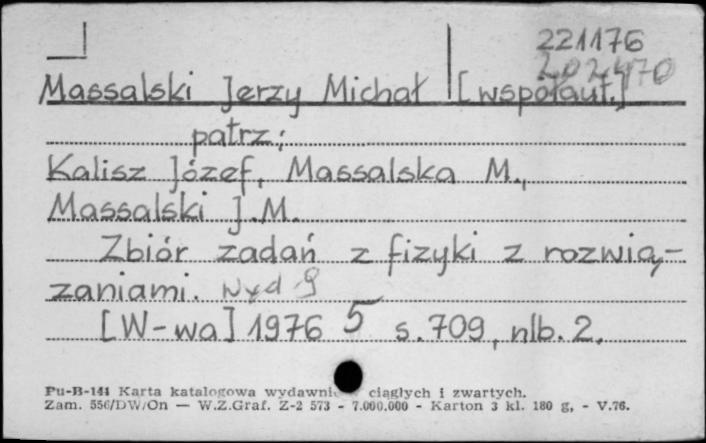 221176
202470
Massalski Jerzy Michał [współaut.]
patrz:
Kalisz Józef, Massalska M.,
Massalski J.M.
Zbiór zadań z fizyki z rozwią-
zaniami. Wyd 9
[W-wa] 1976 5 s. 709, nlb. 2.
Pu-B-144 Karta katalogowa wydawnic ciągłych i zwartych.
Zam. 556/DW/On — W.Z.Graf. Z-2 573 - 7.000.000 - Karton 3 kl. 180 g, - V.76.